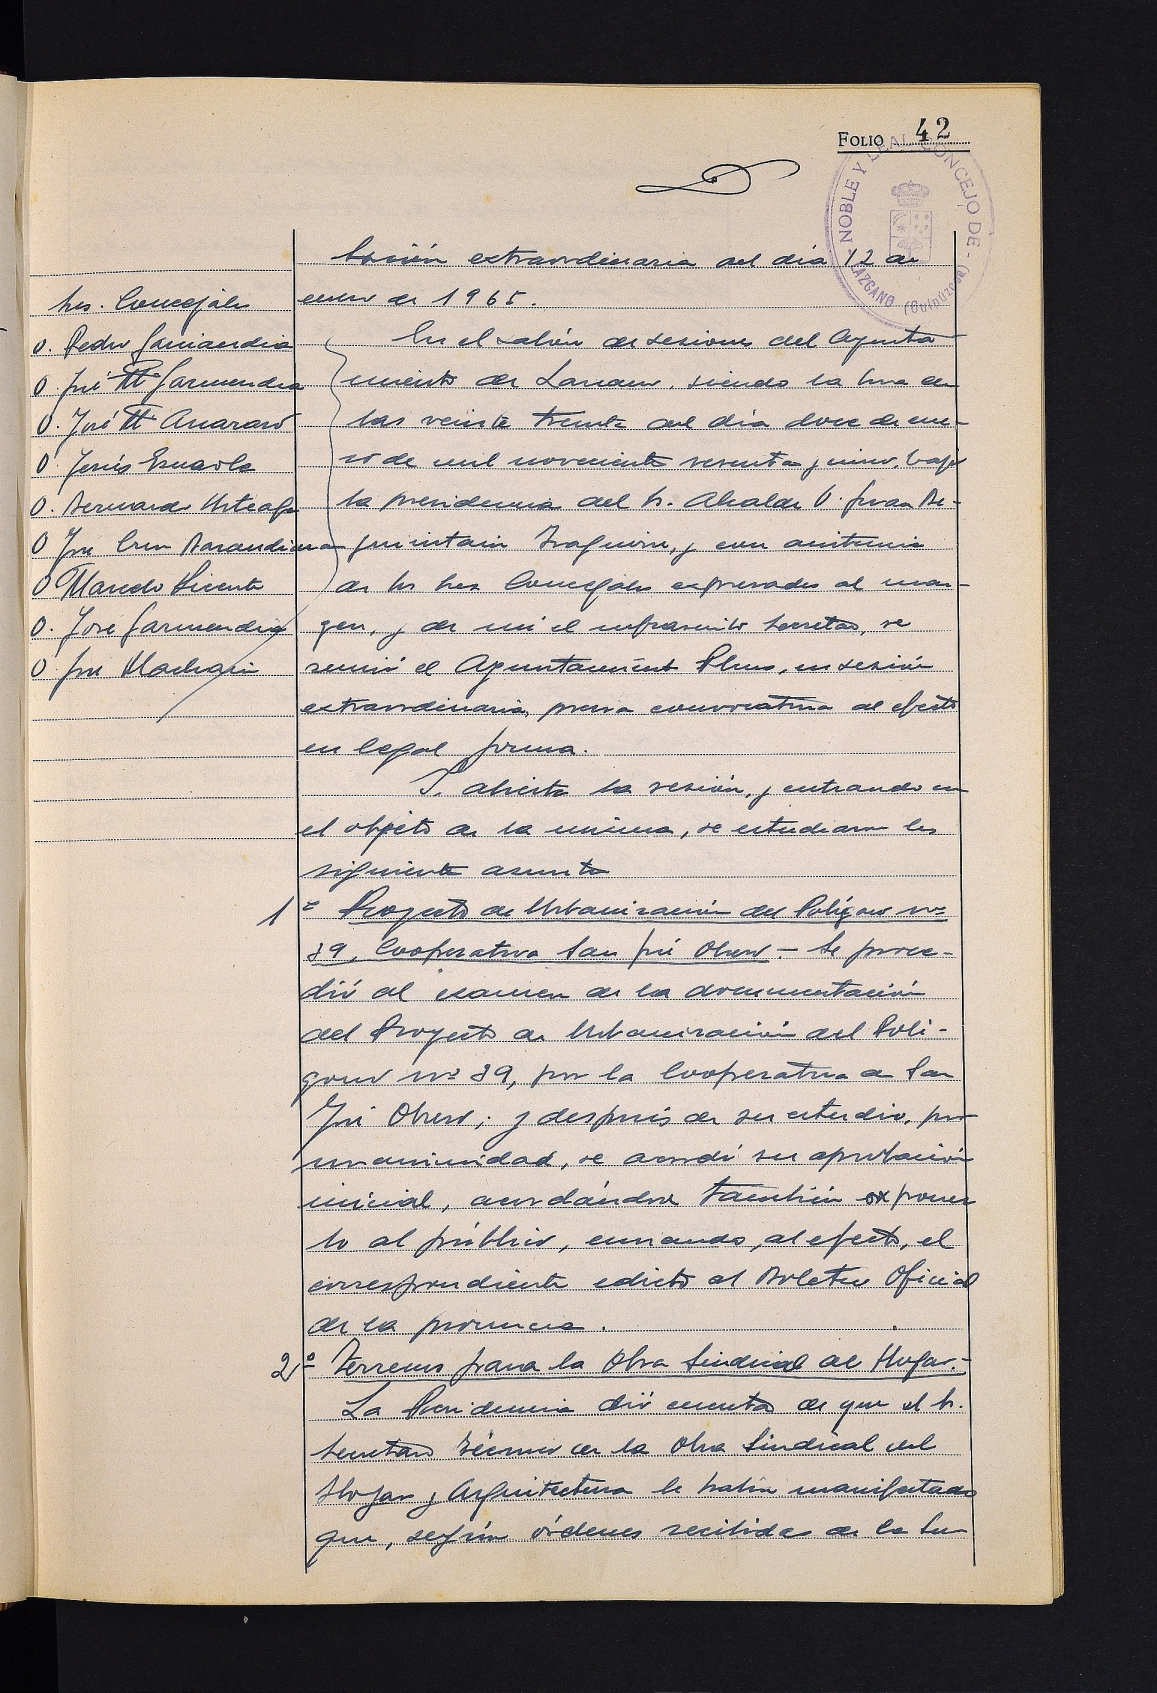 FOLIO 42
NOBLE Y LEAL CONCEJO DE LAZCANO (Guipúzcoa)
Sesión extraordinaria del dia 12 de
enero de 1965.
Sres. Concejales
D. Pedro Garciandia
D. José Mª Garmendia
D. José Mª
D. Jesús
D. Bernardo Urteaga
D. José Cruz Barandiaran
D. Marcelo Vicente
D. José Garmendia
D. José
En el salón de sesiones del Ayunta
miento de Lazcano, siendo la hora de
las veinte treinta del dia doce de ene-
ro de mil novecientos sesenta y cinco, bajo
la presidencia del Sr. Alcalde D. Juan Be-
guiristain, y con asistencia
de los Sres Concejales expresados al mar-
gen, y de mi el infrascrito Secretario, se
reunió el Ayuntamiento Pleno, en sesión
extraordinaria, previa convocatoria al efecto
en legal forma.
abierta la sesión, y entrando en
el objeto de la misma, se estudiaron los
siguientes asuntos
1º Proyecto de Urbanización del Poligono nº
39, Cooperativa San José Obrero.- Se proce-
dió al examen de la documentación
del Proyecto de Urbanización del Poli-
gono nº 39, por la Cooperativa de San
José Obrero; y después de su estudio, por
unanimidad, se acordó su aprobación
inicial, acordándose también exponer
lo al público, enviando, al efecto, el
correspondiente edicto al Boletin Oficial
de la provincia.
2º Terrenos para la Obra Sindical del Hogar.-
La Presidencia dió cuenta de que el Sr.
Secretario Técnico de la Obra Sindical del
Hogar y Arquitectura le habia manifestado
que, según órdenes recibidas de la Su